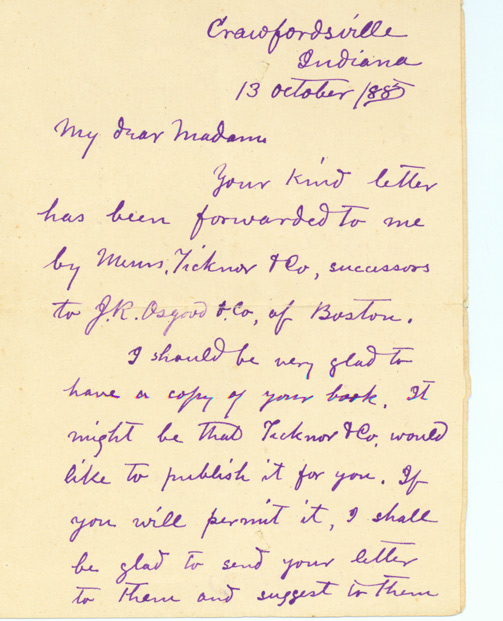 Crawfordsville
Indiana
13 October 1885
My dear Madam
Your kind letter
has been forwarded to me
by Messrs. Ticknor & Co, successors
to J.R. Osgood & Co, of Boston.
I should be very glad to
have a copy of your book. It
might be that Ticknor & Co. would
like to publish it for you. If
you will permit it, I shall
be glad to send your letter
to them and suggest to them